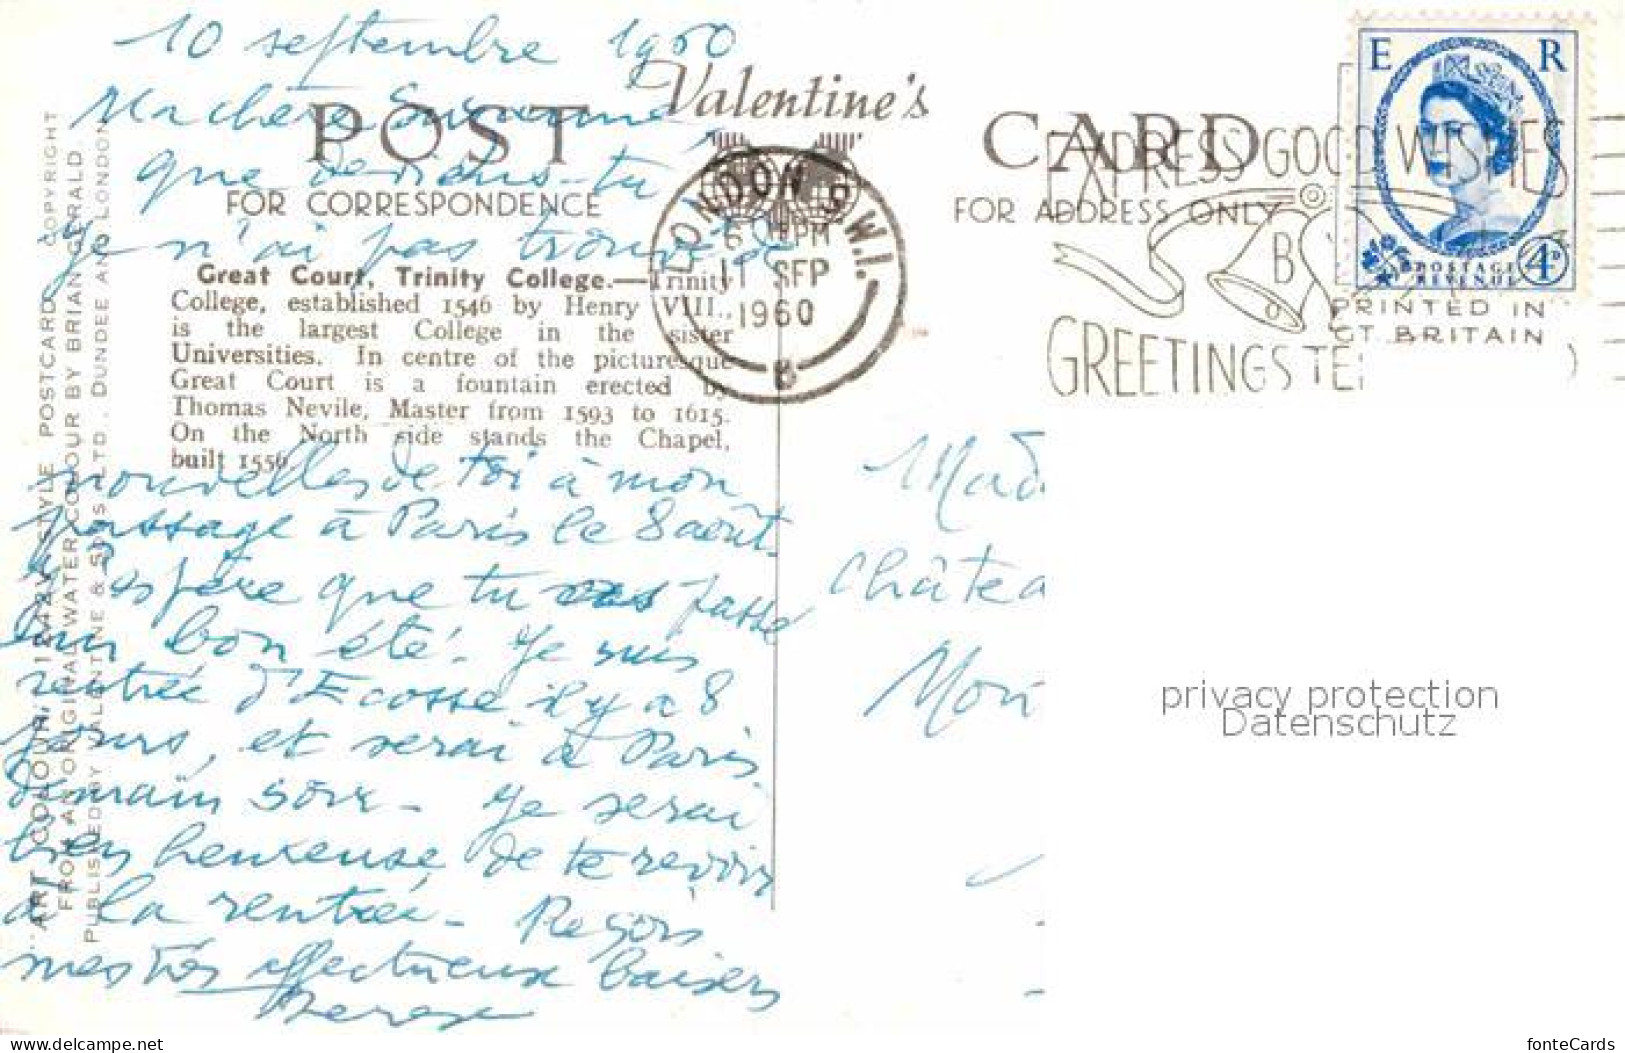 10 septembre 1960
Ma chère Suzanne
que deviens-tu
Je n'ai pas trouvé de
nouvelles de toi à mon
passage à Paris le 8 août.
J'espère que tu as passé
un bon été. Je suis
rentrée d'Ecosse il y a 8
jours, et serai à Paris
demain soir. Je serai
bien heureuse de te revoir
à la rentrée. Reçois
mes très affectueux baisers
POST CARD
Valentine's
FOR CORRESPONDENCE
FOR ADDRESS ONLY
Great Court, Trinity College.—Trinity
College, established 1546 by Henry VIII.,
is the largest College in the sister
Universities. In centre of the picturesque
Great Court is a fountain erected by
Thomas Nevile, Master from 1593 to 1615.
On the North side stands the Chapel,
built 1556.
COPYRIGHT
ART COLOUR POSTCARD
FROM AN ORIGINAL WATER COLOUR BY BRIAN GERALD
PUBLISHED BY VALENTINE & SONS LTD., DUNDEE AND LONDON
LONDON S.W.1.
PM
11 SEP
1960
8
EXPRESS GOOD WISHES
B
GREETINGS TE
E R
POSTAGE
REVENUE
4D
PRINTED IN
GT. BRITAIN
Mad
Châtea
Mon
privacy protection
Datenschutz
www.ak-ansichtskarten.de
fonteCards